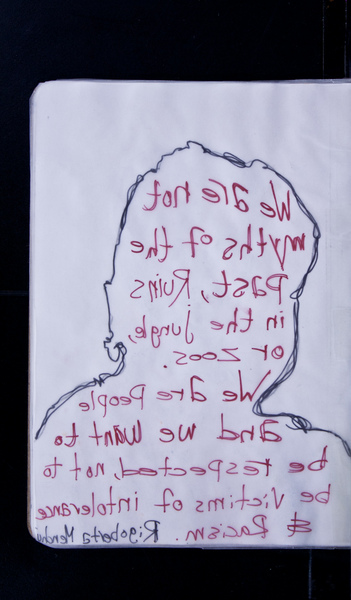 We are not
myths of the
past, Ruins
in the jungle,
or zoos.
We are people
and we want to
be respected, not to
be victims of intolerance
& Racism. Rigoberta Menchú